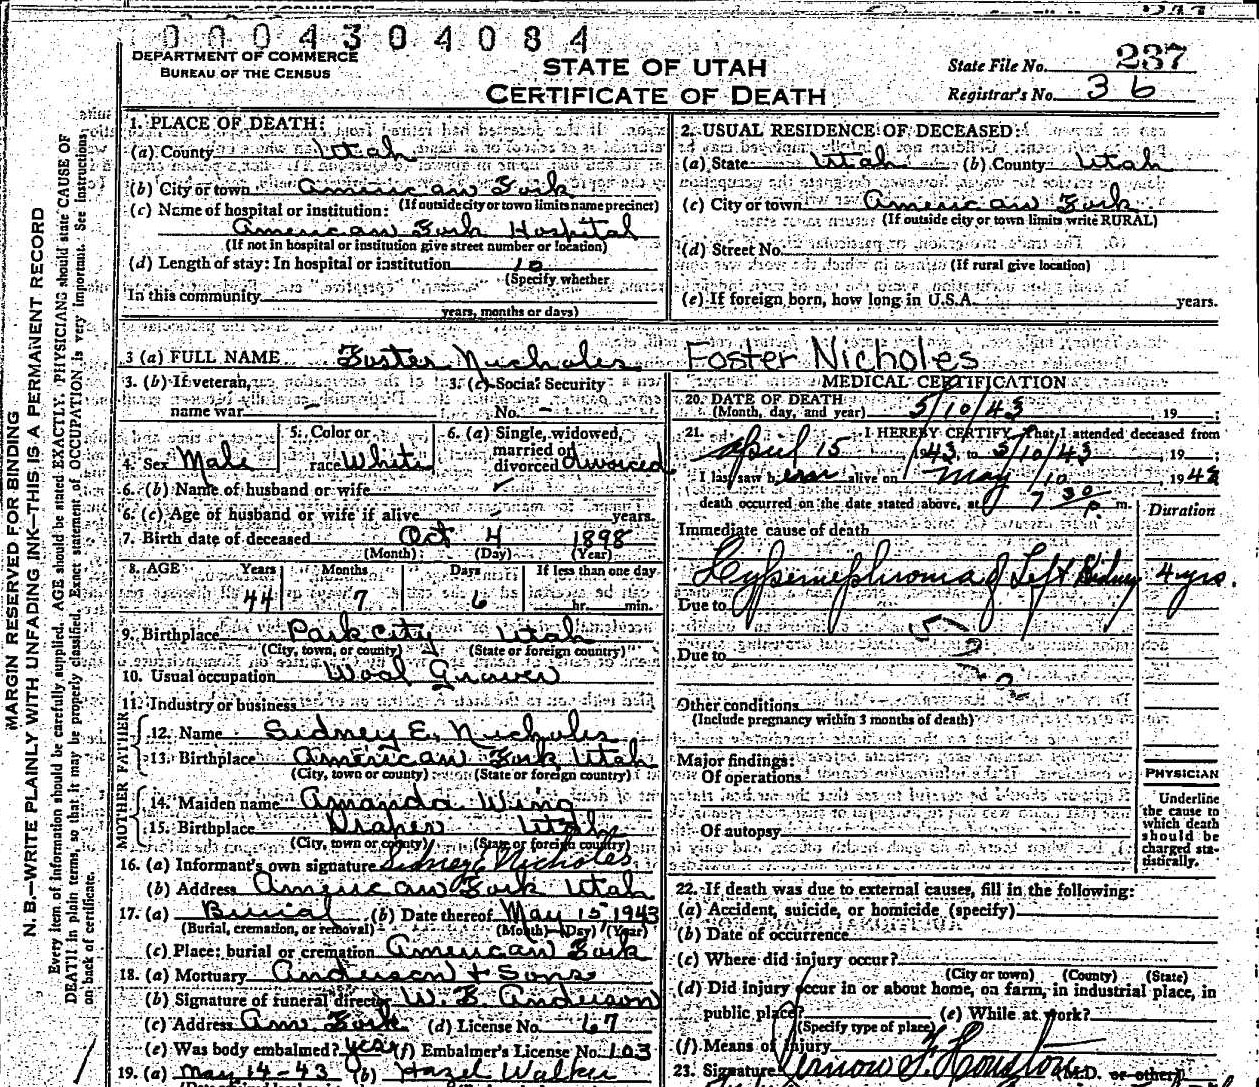 0004304084
DEPARTMENT OF COMMERCE
BUREAU OF THE CENSUS
STATE OF UTAH
CERTIFICATE OF DEATH
State File No. 237
Registrar's No. 36
MARGIN RESERVED FOR BINDING
N. B.—WRITE PLAINLY WITH UNFADING INK—THIS IS A PERMANENT RECORD
Every item of information should be carefully supplied. AGE should be stated EXACTLY. PHYSICIANS should state CAUSE OF
DEATH in plain terms, so that it may be properly classified. Exact statement of OCCUPATION is very important. See instructions
on back of certificate.
1. PLACE OF DEATH:
(a) County Utah
(b) City or town American Fork
(If outside city or town limits name precinct)
(c) Name of hospital or institution:
American Fork Hospital
(If not in hospital or institution give street number or location)
(d) Length of stay: In hospital or institution 10
(Specify whether
In this community
years, months or days)
2. USUAL RESIDENCE OF DECEASED:
(a) State Utah (b) County Utah
(c) City or town American Fork
(If outside city or town limits write RURAL)
(d) Street No.
(If rural give location)
(e) If foreign born, how long in U.S.A. years.
3 (a) FULL NAME Foster Nicholes Foster Nicholes
3. (b) If veteran, name war - 3. (c) Social Security No. -
4. Sex Male 5. Color or race White 6. (a) Single, widowed, married or divorced divorced
6. (b) Name of husband or wife
6. (c) Age of husband or wife if alive - years.
7. Birth date of deceased Oct 4 1898
(Month) (Day) (Year)
8. AGE Years Months Days If less than one day
44 7 6 hr. min.
9. Birthplace Park City Utah
(City, town, or county) (State or foreign country)
10. Usual occupation Wool Grower
11. Industry or business
FATHER
12. Name Sidney E. Nicholes
13. Birthplace American Fork Utah
(City, town or county) (State or foreign country)
MOTHER
14. Maiden name Amanda Wing
15. Birthplace Draper Utah
(City, town or county) (State or foreign country)
16. (a) Informant's own signature Sidney E Nicholes
(b) Address American Fork Utah
17. (a) Burial (b) Date thereof May 15 1943
(Burial, cremation, or removal) (Month) (Day) (Year)
(c) Place: burial or cremation American Fork
18. (a) Mortuary Anderson & Sons
(b) Signature of funeral director W. E. Anderson
(c) Address Am. Fork (d) License No. 67
(e) Was body embalmed? yes (f) Embalmer's License No. 103
19. (a) May 14-43 (b) Hazel Walker
MEDICAL CERTIFICATION
20. DATE OF DEATH
(Month, day, and year) 5/10/43, 19
21. I HEREBY CERTIFY, That I attended deceased from
April 15 1943, to 5/10/43, 19
I last saw him alive on May 10 1943
death occurred on the date stated above, at 7 30 p. m.
Duration
Immediate cause of death
Hypernephroma of Left Kidney 4 yrs.
Due to
Due to
Other conditions
(Include pregnancy within 3 months of death)
Major findings:
Of operations
Of autopsy
PHYSICIAN
Underline
the cause to
which death
should be
charged sta-
tistically.
22. If death was due to external causes, fill in the following:
(a) Accident, suicide, or homicide (specify)
(b) Date of occurrence
(c) Where did injury occur?
(City or town) (County) (State)
(d) Did injury occur in or about home, on farm, in industrial place, in
public place? (e) While at work?
(Specify type of place)
(f) Means of injury
23. Signature Vernow F. Houston (M.D. or other)